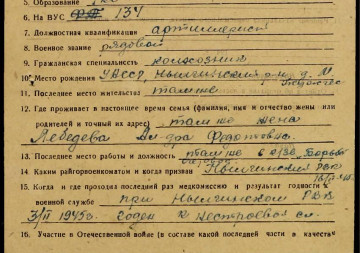 5. Образование
6. На ВУС 134
7. Должностная квалификация артиллерист
8. Военное звание рядовой
9. Гражданская специальность колхозник
10. Место рождения УАССР, Нылгинский р-н, д. М.
11. Последнее место жительства там же
12. Где проживает в настоящее время семья (фамилия, имя и отчество жены или
родителей и точный их адрес) там же жена
Лебедева
13. Последнее место работы и должность там же Борьба
14. Каким райгорвоенкоматом и когда призван Нылгинским РВК
15. Когда и где проходил последний раз медкомиссию и результат годности к
военной службе при Нылгинском РВК
3/II 1945г. годен к нестроевой сл.
16. Участие в Отечественной войне (в составе какой последней части в качестве